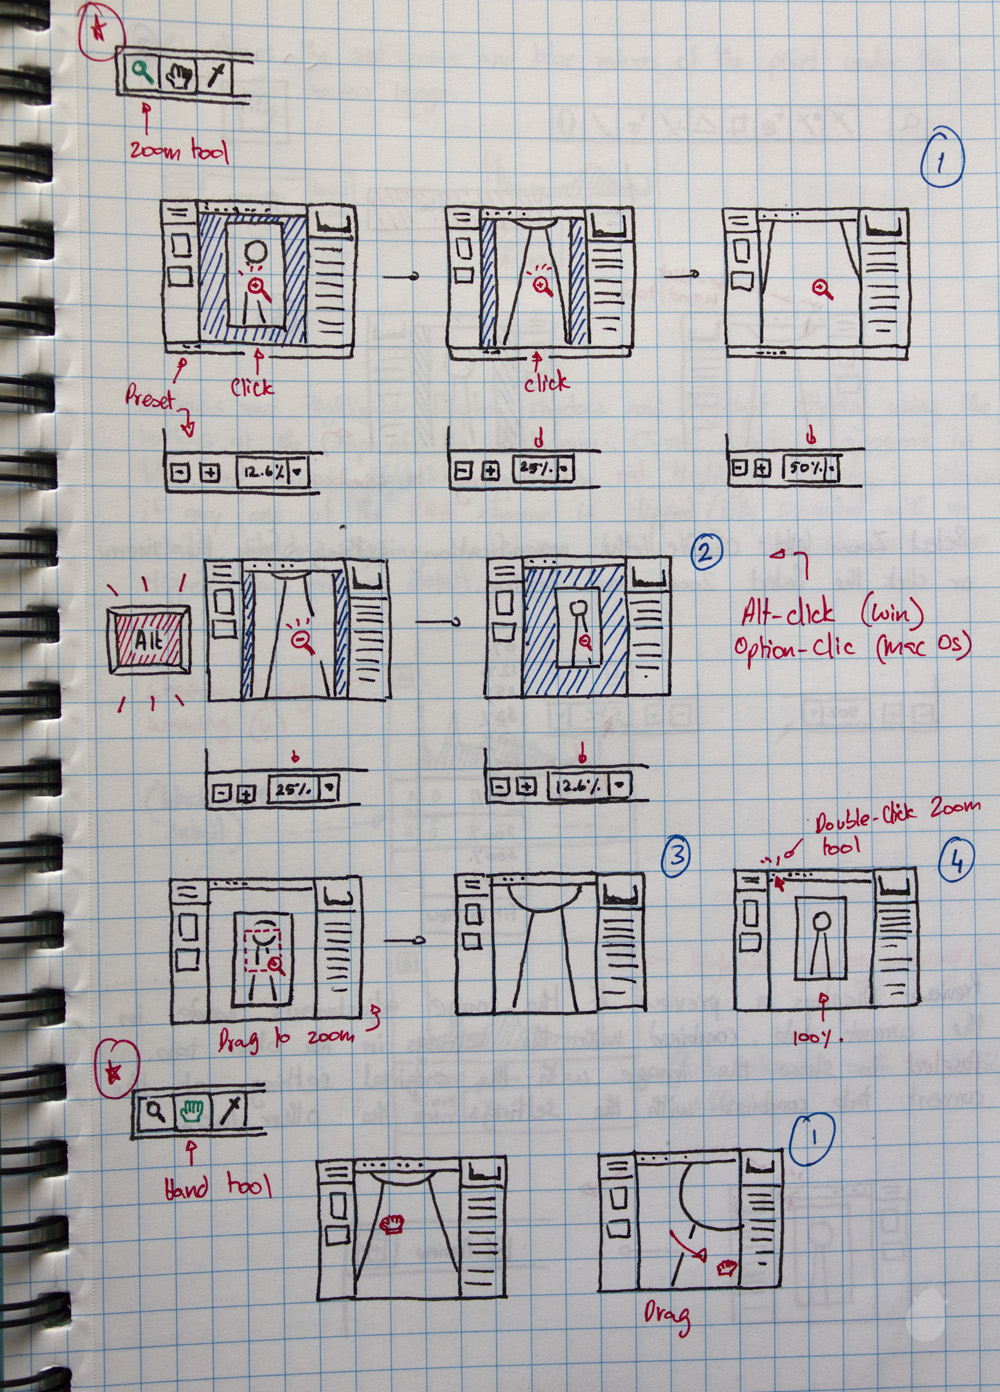 zoom tool
1
Preset
Click
click
12.6%
25%
50%
2
Alt
Alt-click (win)
Option-Clic (mac Os)
25%
12.6%
3
Double-Click Zoom
tool
4
Drag to zoom
100%.
Hand tool
1
Drag